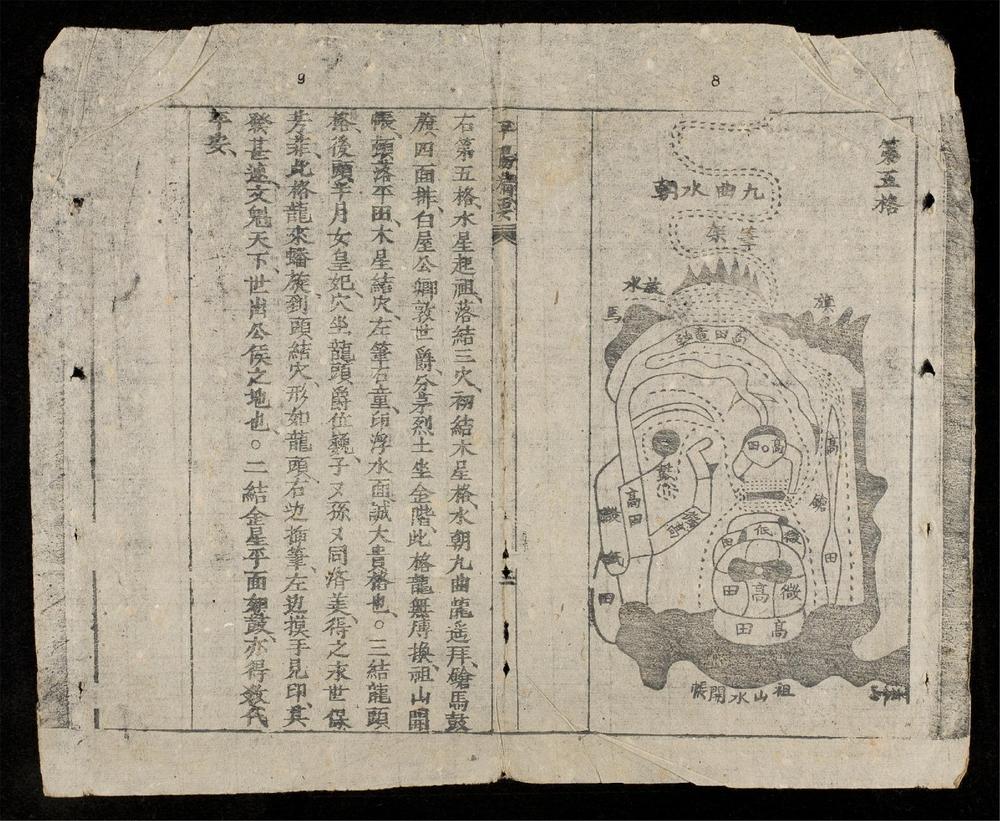 8
第五格
九曲水朝
案
旗
馬
高田
高
田
高田
低
微
田
高
田
高田
祖山水開帳
9
右第五格水星起祖落結三穴初結木星格水朝九曲龍遥拜鎗馬鼓
旗四面排白屋公卿敦世爵分茅烈土坐金階此格龍無愽換祖山開
帳頭落平田木星結穴左筆右童印浮水面誠大貴格也。三結龍頭
格後頭半月女皇妃穴坐龍頭爵位巍子又孫又同洛美得之求世保
芳菲此格龍來蟠旋到頭結穴形如龍頭右边揷筆左边摸手見印其
發甚速文魁天下世出公侯之地也。二結金星平面如鼓亦得数代
平安